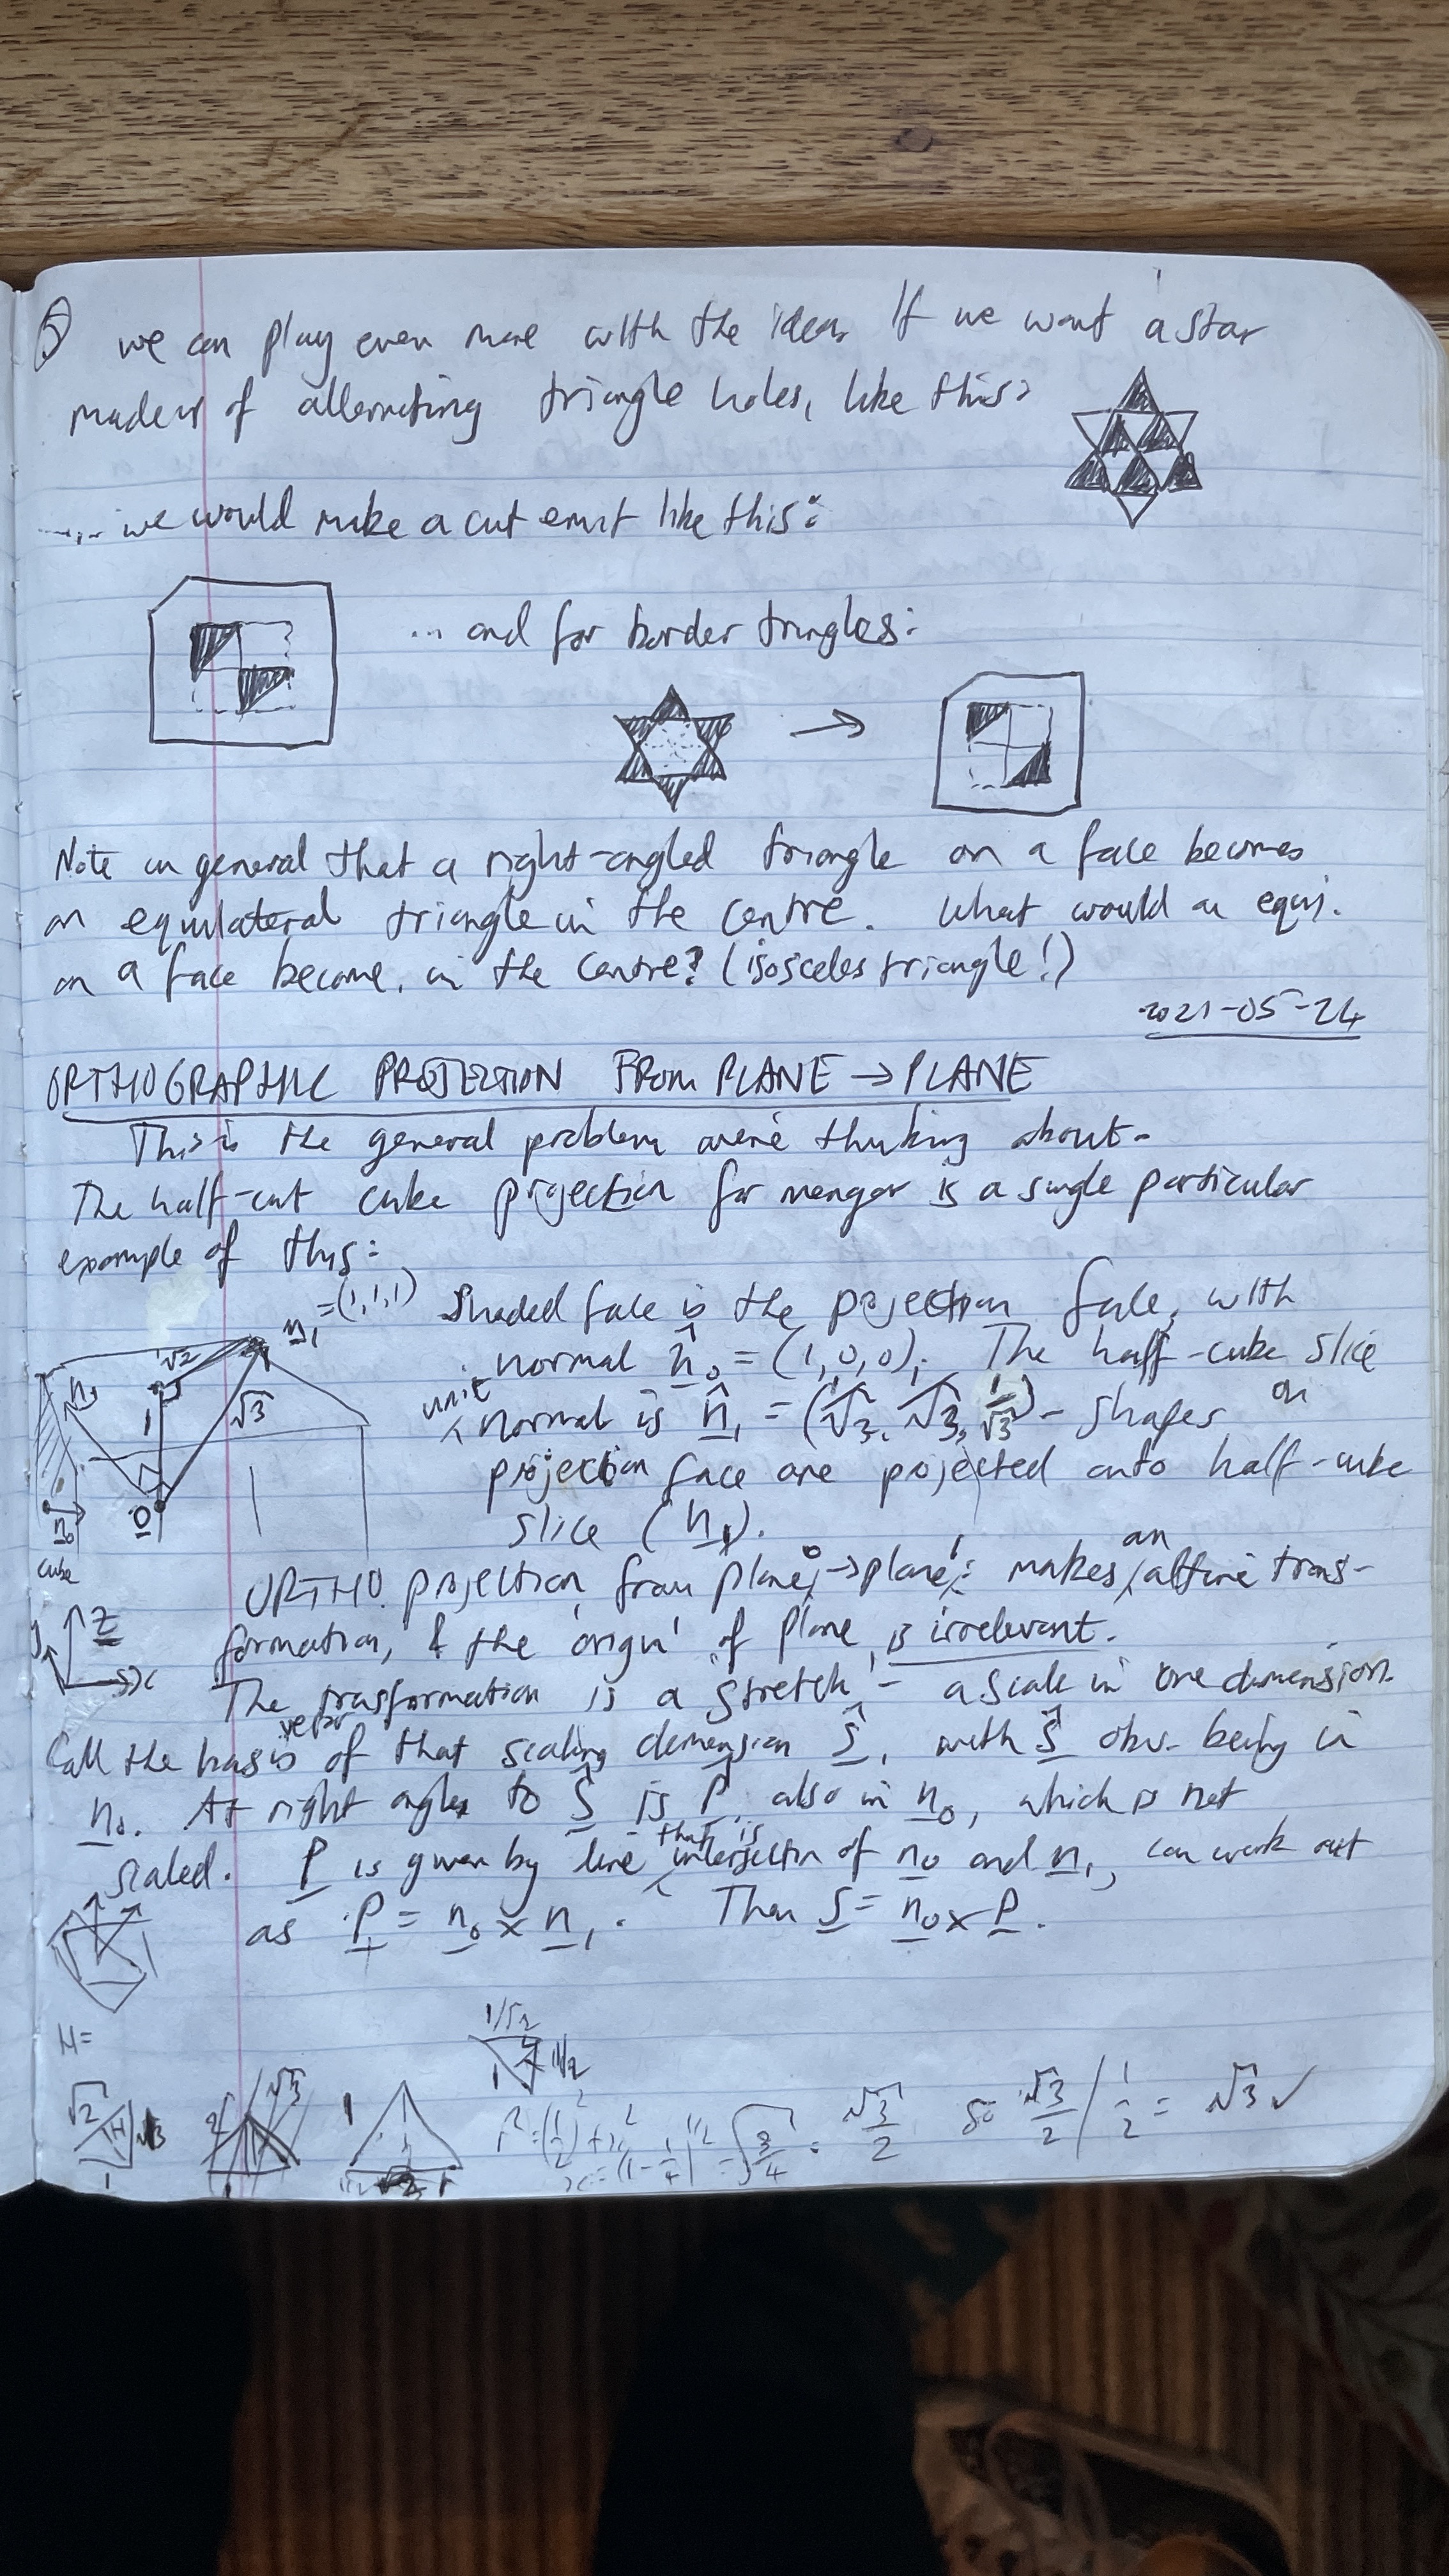 ⑤ we can play even more with the idea. If we want a star
made of alternating triangle holes, like this:
... we would make a cut out like this:
... and for border triangles:
Note in general that a right-angled triangle on a face becomes
an equilateral triangle in the centre. What would an equi.
on a face become, in the centre? (isosceles triangle!)
2021-05-24
ORTHOGRAPHIC PROJECTION FROM PLANE → PLANE
This is the general problem we're thinking about.
The half-cut cube projection for menger is a single particular
example of this:
n₁ = (1,1,1)
Shaded face is the projection face, with
normal n̂₀ = (1,0,0). The half-cube slice
unit normal is n̂₁ = (1/√3, 1/√3, 1/√3) - shapes on
projection face are projected onto half-cube
slice (n₁).
√2
n₁
1
√3
n₀
O
cube
ORTHO. projection from plane₀ → plane₁ makes an affine trans-
formation, & the 'origin' of plane is irrelevant.
y z x
The transformation is a 'stretch' - a scale in one dimension.
Call the basis vector of that scaling dimension Ŝ, with Ŝ obv. being in
n₀. At right angles to Ŝ is P, also in n₀, which is not
scaled. P is given by line that is intersection of n₀ and n₁, can work out
as P = n₀ × n₁. Then S = n₀ × P.
H=
1/√2
1
√2 H 1
√3
1
√3/2 so √3/2 / 1/2 = √3 ✓